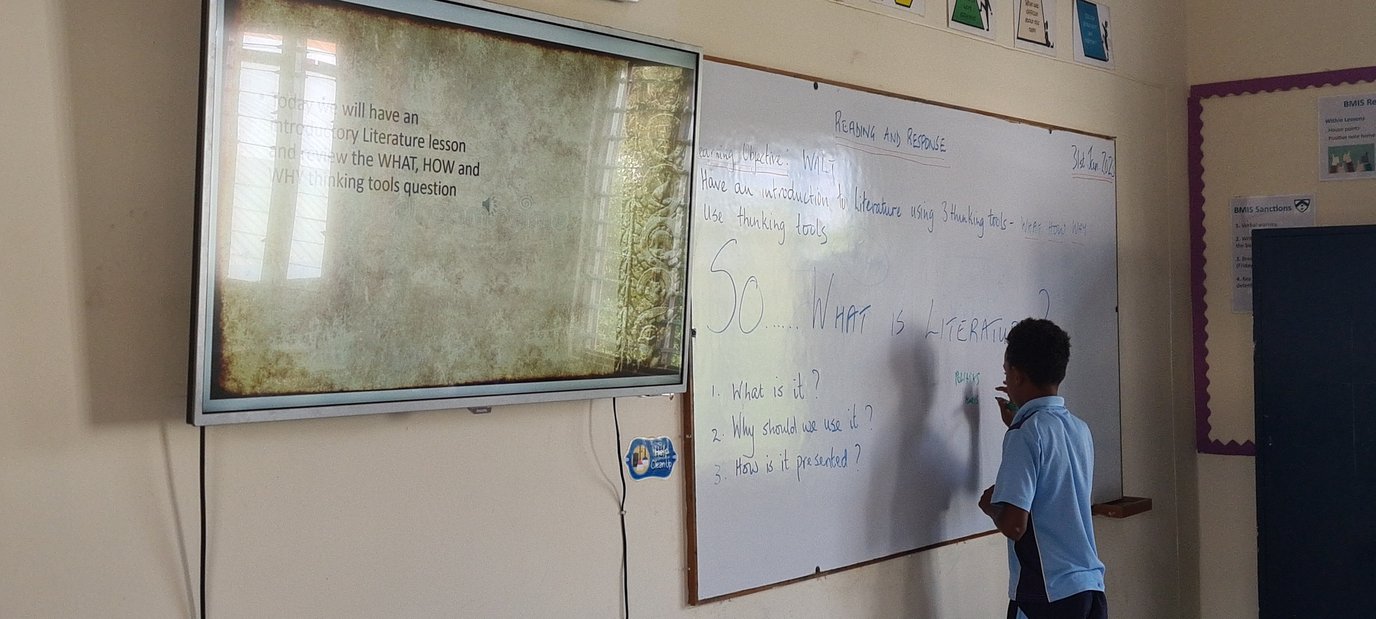 Today we will have an
introductory Literature lesson
and review the WHAT, HOW and
WHY thinking tools question
READING AND RESPONSE
31st Jan
Learning Objective: WALT
Have an introduction to Literature using 3 thinking tools - WHAT HOW WHY
Use thinking tools
So...... WHAT IS LITERATU ?
1. What is it ?
2. Why should we use it ?
3. How is it presented ?
Help
Clean Up
BMIS Re
Within Lessons
House points
Positive note home
BMIS Sanctions
1. Verbal warning